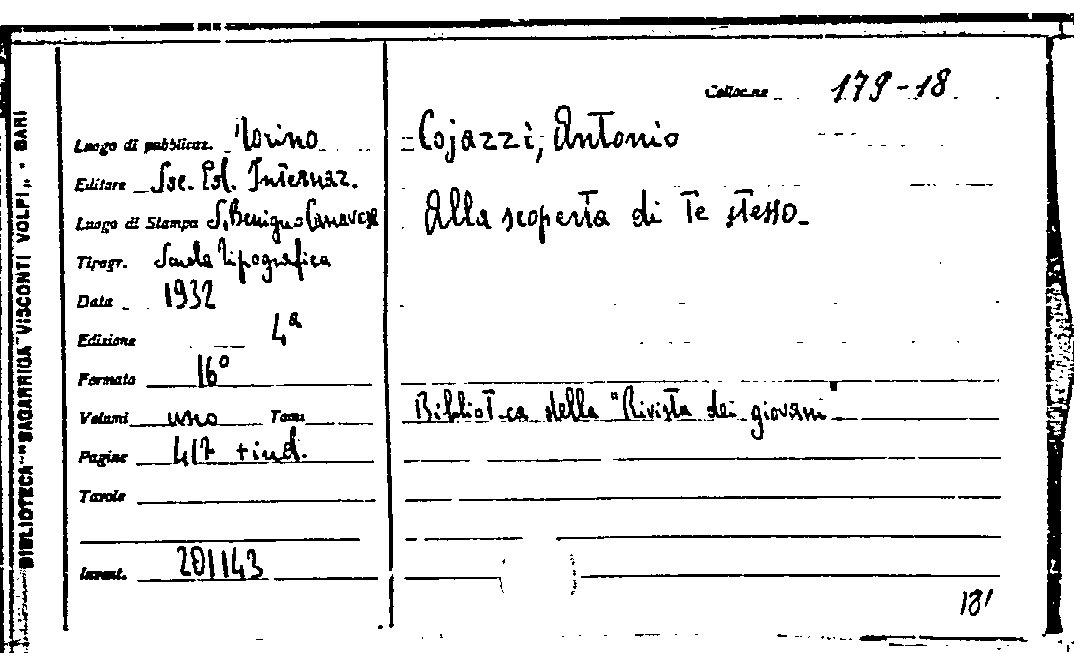 BIBLIOTECA "SAGARRIGA VISCONTI VOLPI" - BARI
Collocne 179-18
Luogo di pubblicaz. Torino
Editore Soc. Ed. Internaz.
Luogo di Stampa S. Benigno Canavese
Tipogr. Scuola tipografica
Data 1932
Edizione 4ª
Formato 16°
Volumi uno Tomi
Pagine 417 + ind.
Tavole
Invent. 201143
Cojazzi, Antonio
Alla scoperta di te stesso
Biblioteca della "Rivista dei giovani"
181